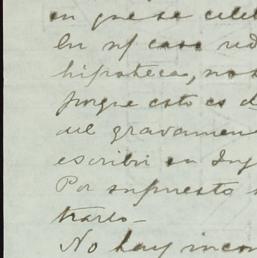 en que se cele
En n/ caso red
hipoteca, no s
porque esto es d
el gravamen
escribir en Ing
Por supuesto
trario-
No hay incon